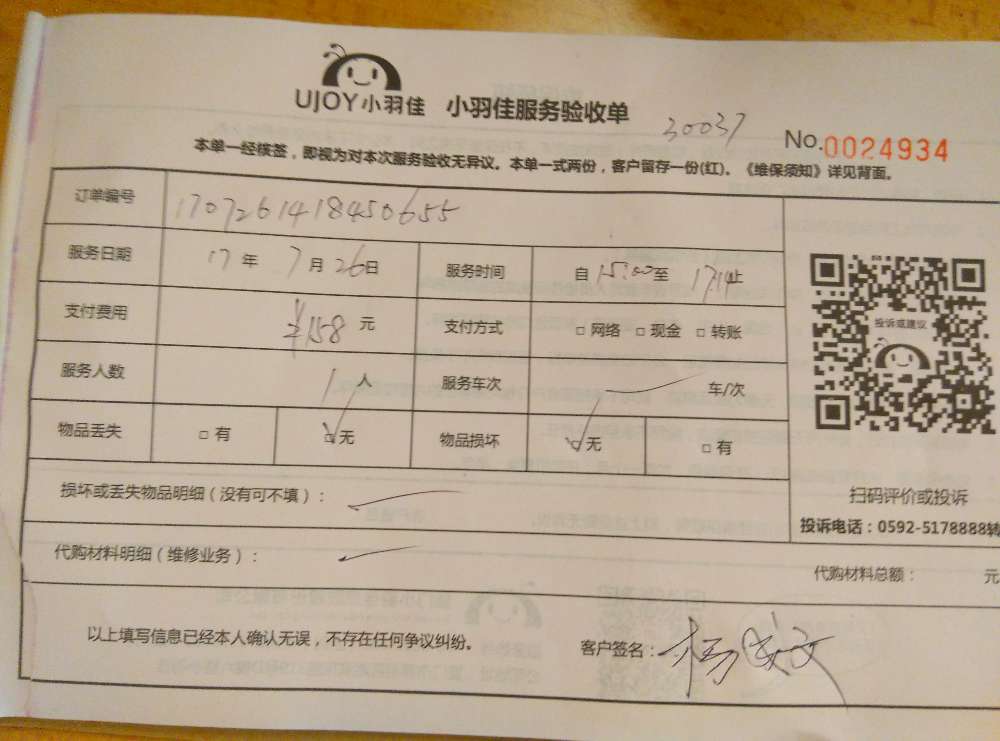 UJOY小羽佳 小羽佳服务验收单
30037
No.0024934
本单一经核签，即视为对本次服务验收无异议。本单一式两份，客户留存一份(红)。《维保须知》详见背面。
订单编号 1707261418450655
服务日期 17年7月26日 服务时间 自15:00至17:14止
支付费用 ¥158元 支付方式 □网络 □现金 □转账
服务人数 1人 服务车次 车/次
物品丢失 □有 ☑无 物品损坏 ☑无 □有
投诉或建议
扫码评价或投诉
投诉电话：0592-5178888转
损坏或丢失物品明细（没有可不填）：
代购材料明细（维修业务）：
代购材料总额： 元
以上填写信息已经本人确认无误，不存在任何争议纠纷。 客户签名：